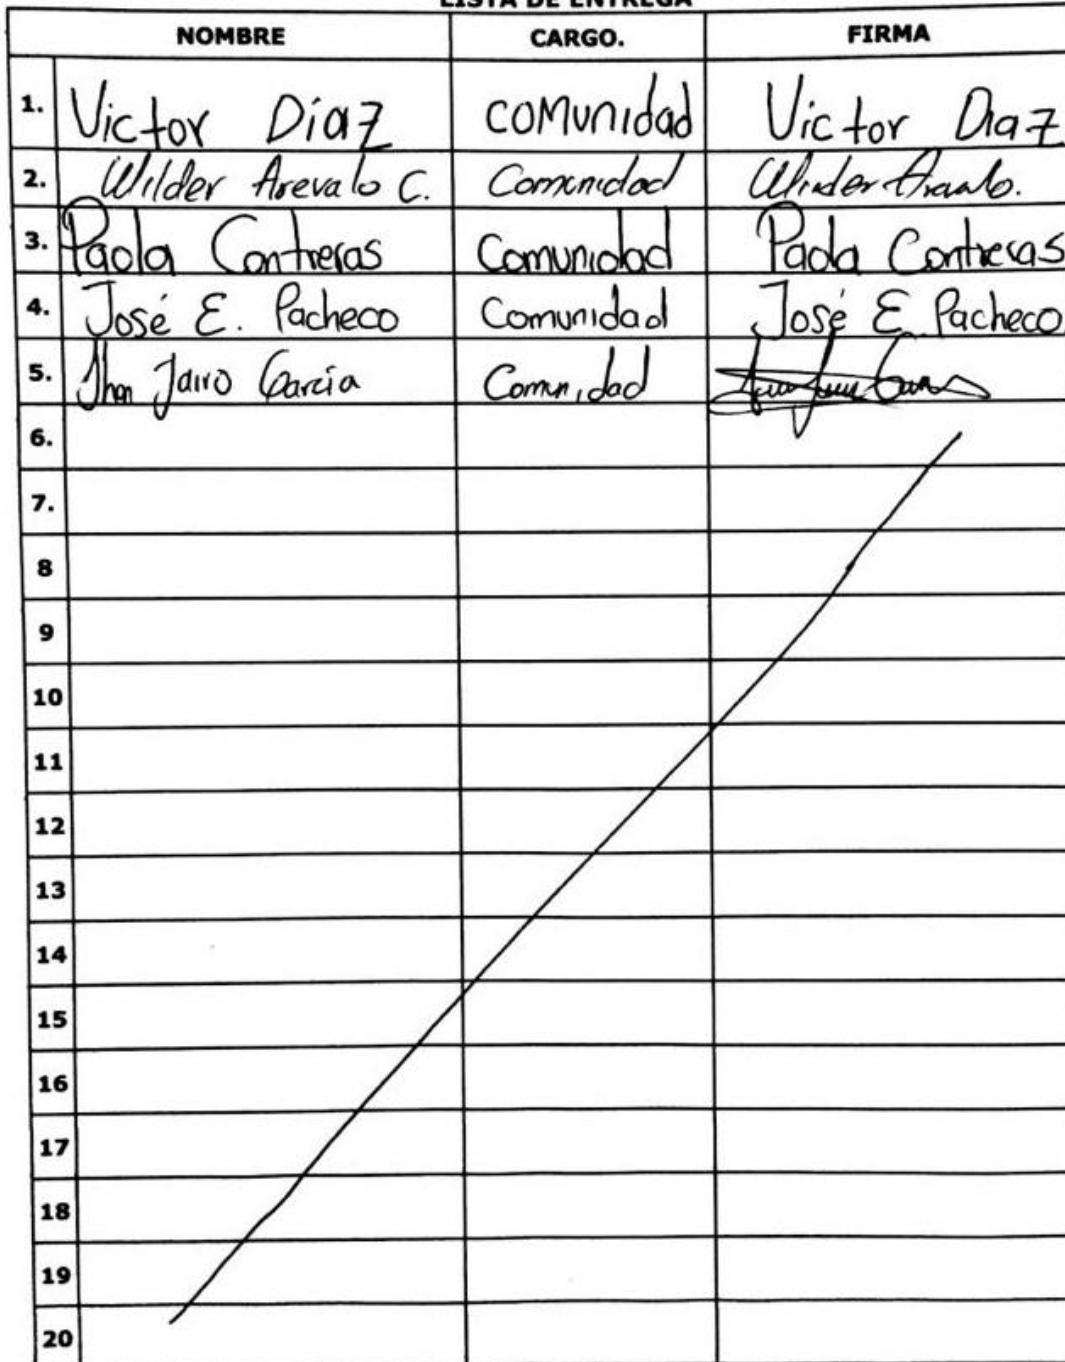 LISTA DE ENTREGA
NOMBRE CARGO. FIRMA
1. Victor Díaz comunidad Victor Diaz
2. Wilder Arevalo C. Comunidad Wilder Arevalo.
3. Paola Contreras Comunidad Paola Contreras
4. José E. Pacheco Comunidad José E Pacheco
5. Jhon Jairo García Comunidad
6.
7.
8
9
10
11
12
13
14
15
16
17
18
19
20